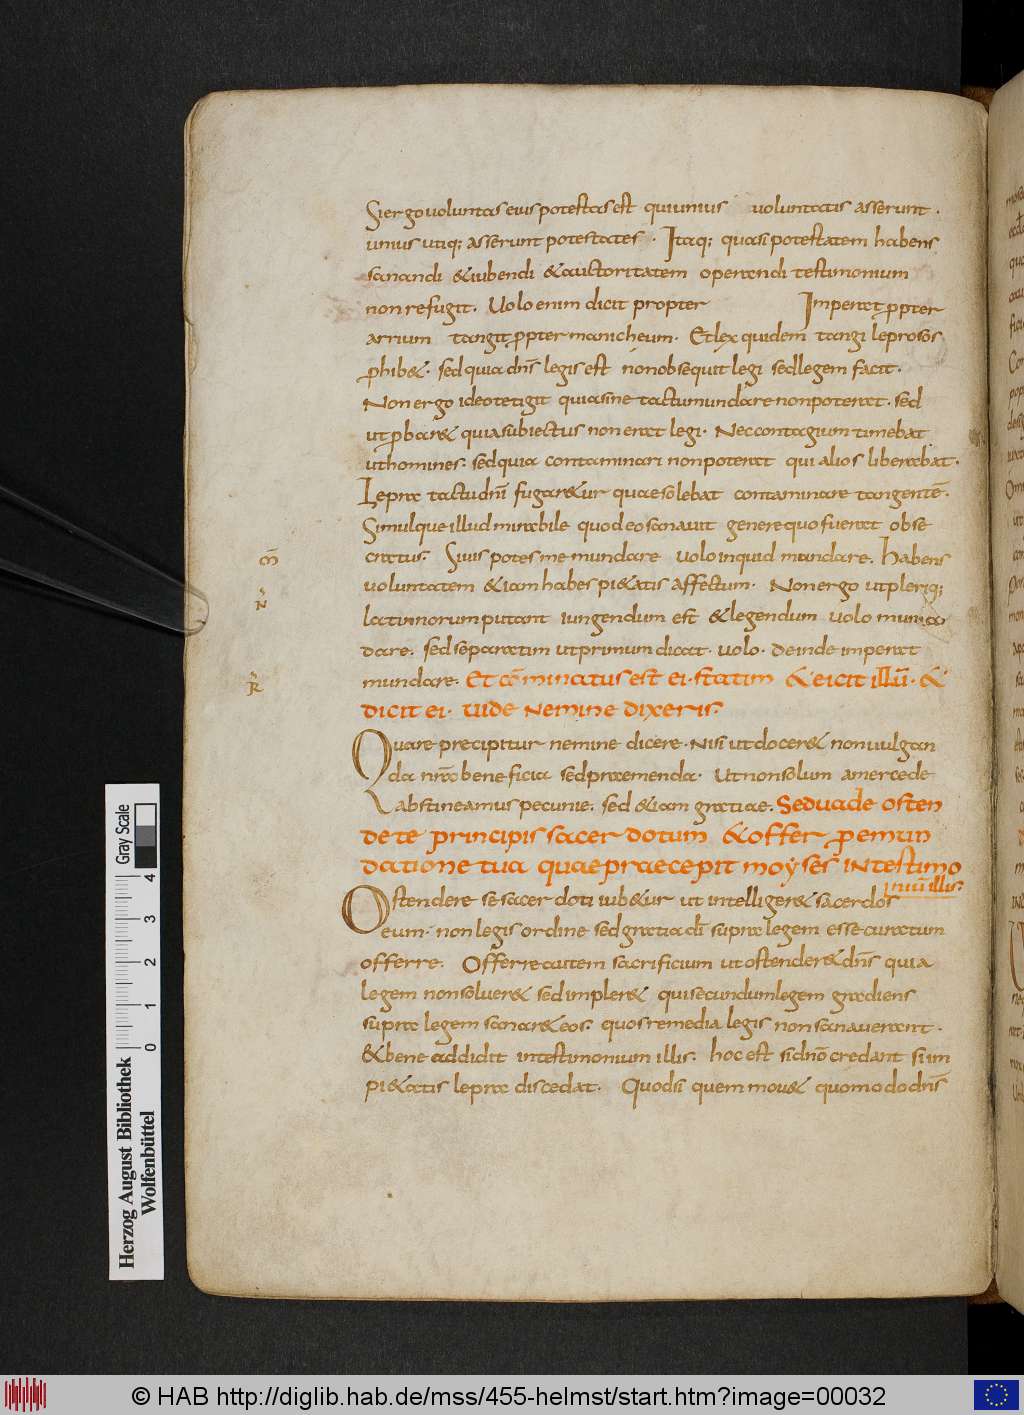 Si ergo voluntas eius potestas est qui unius voluntatis asserunt.
unius utiq; asserunt potestates. Itaq; quasi potestatem habens
sanandi & iubendi & auctoritatem operandi testimonium
non refugit. Volo enim dicit propter Imperat ppter
arrium tangit ppter manicheum. Et lex quidem tangi leprosos
phib&. sed quia dns legis est non obsequit legi sed legem facit.
Non ergo ideo tetigit quia sine tactu mundare non poterat. sed
ut pbar& quia subiectus non erat legi. Nec contagium timebat
ut homines. sed quia contaminari non poterat qui alios liberabat.
Lepra tactu dni fugar&ur quae solebat contaminare tangentē.
Simulque illud mirabile quod eo sanavit genere quo fuerat obse
cratus. Si vis potes me mundare volo inquid mundare. Habens
voluntatem & iam habes pi&atis affectum. Non ergo ut pleriq;
latinorum putant iungendum est & legendum volo mun
dare. sed separatim ut primum dicat. volo. deinde imperat
mundare. Et cōminatus est ei. statim & eicit illū. &
dicit ei. vide nemine dixeris
Quare precipitur nemine dicere. Nisi ut docer& non vulgan
da nra beneficia sed praemenda. Ut non solum a mercede
abstineamus pecunie. sed & iam gratiae. Sed vade osten
de te principis sacerdotum & offer p emun
datione tua quae praecepit moyses in testimo
niū illis.
Ostendere se sacerdoti iub&ur ut intelliger& sacerdos
eum. non legis ordine sed gratia di supra legem esse curatum
offerre. Offerre autem sacrificium ut ostender& dns quia
legem non solver& sed impler& qui secundum legem gradiens
supra legem sanar& eos. quos remedia legis non sanaverant.
& bene addidit in testimonium illis. hoc est si dnō credant si im
pi&atis lepra discedat. Quod si quem mov& quomodo dns
m̄
N
R
Gray Scale
4
3
2
1
0
Herzog August Bibliothek
Wolfenbüttel
© HAB http://diglib.hab.de/mss/455-helmst/start.htm?image=00032